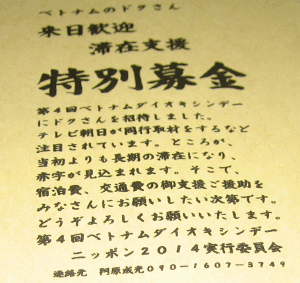 ベトナムのドクさん
来日歓迎
滞在支援
特別募金
第4回ベトナムダイオキシンデー
にドクさんを招待しました。
テレビ朝日が同行取材をするなど
注目されています。ところが、
当初よりも長期の滞在になり、
赤字が見込まれます。そこで、
宿泊費、交通費の御支援ご援助を
みなさんにお願いしたい次第です。
どうぞよろしくお願いいたします。
第4回ベトナムダイオキシンデー
ニッポン2014実行委員会
連絡先 阿原成光090-1607-3749